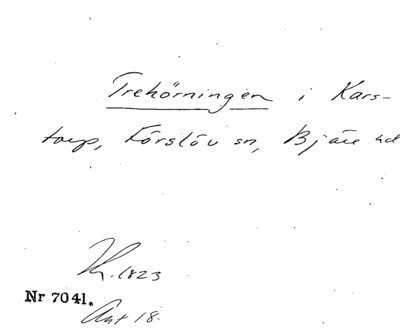 Trehörningen i Kars-
torp, Förslöv sn, Bjäre hd
1823
Nr 7041.
Akt 18.